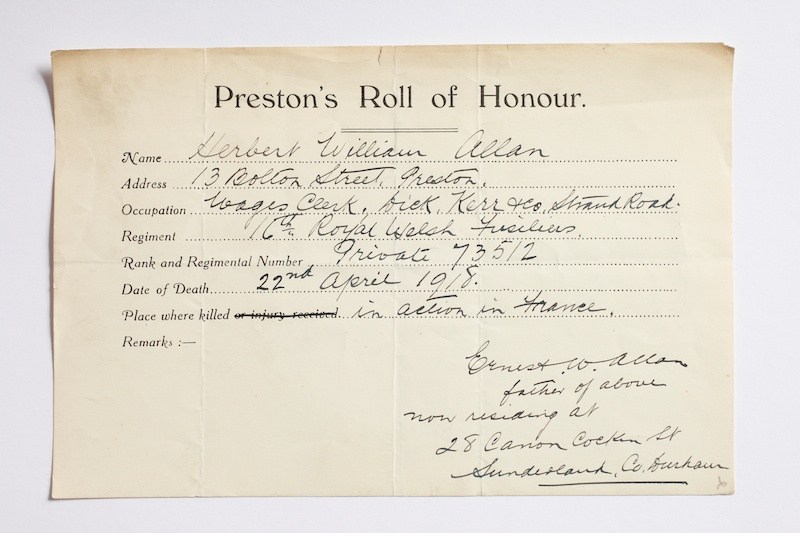 Preston's Roll of Honour.
Name Herbert William Allan
Address 13 Bolton Street, Preston.
Occupation Wages Clerk. Dick, Kerr & Co, Strand Road.
Regiment 16th Royal Welsh Fusiliers.
Rank and Regimental Number Private 73512
Date of Death 22nd April 1918.
Place where killed or injury received. in action in France.
Remarks :—
Ernest. W. Allan
father of above
now residing at
28 Canon Cockin St
Sunderland, Co. Durham